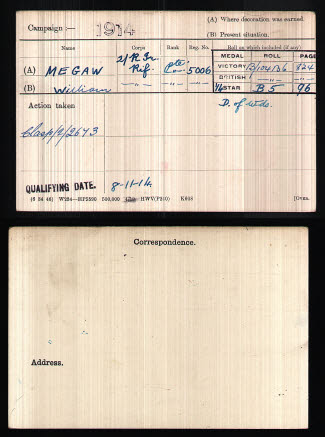 Campaign :— 1914
(A) Where decoration was earned.
(B) Present situation.
Name Corps Rank Reg. No. Roll on which included (if any)
MEDAL ROLL PAGE
(A) MEGAW 2/R.Ir. Rif. Pte. 5006 VICTORY B/104 B6 924
(B) William —"— —"— —"— BRITISH —"— —"—
14 STAR B5 96
Action taken D. of wds.
Clasp/2/2673
QUALIFYING DATE. 8-11-14
(6 34 46) W234—HP5590 500,000 HWV(P240) K608 [Over.
Correspondence.
Address.